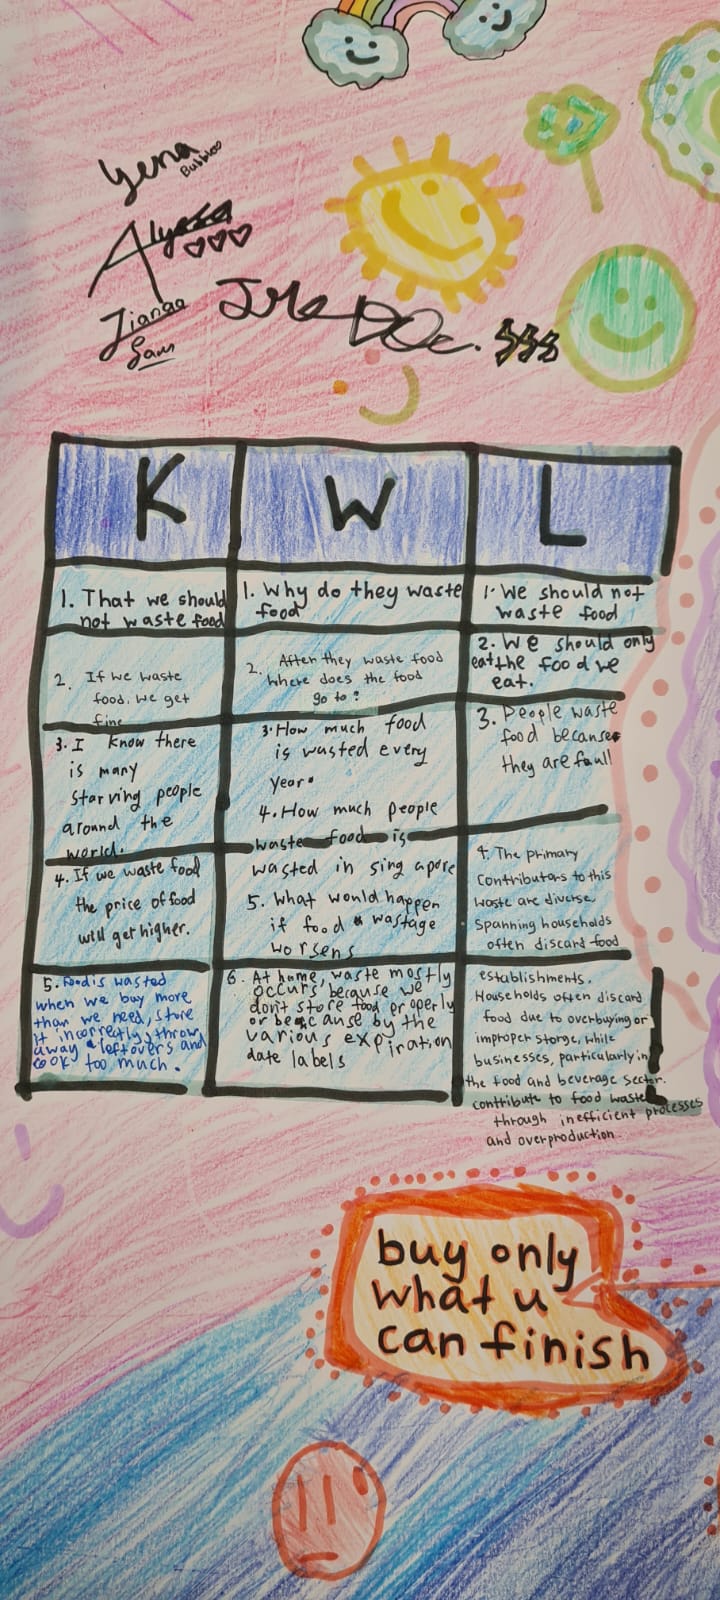 Yena
Bubbles
Alyssa
Jianaa
Sam
K
W
L
1. That we should
not waste food
2. If we waste
food, we get
fine
3. I know there
is many
starving people
around the
world.
4. If we waste food
the price of food
will get higher.
5. Food is wasted
when we buy more
than we need, store
it incorrectly, throw
away leftovers and
cook too much.
1. Why do they waste
food
2. After they waste food
where does the food
go to?
3. How much food
is wasted every
year.
4. How much people
waste food is
wasted in singapore
5. What would happen
if food wastage
worsens
6. At home, waste mostly
occurs because we
don't store food properly
or because by the
various expiration
date labels
1. We should not
waste food
2. We should only
eat the food we
eat.
3. People waste
food because
they are full
4. The primary
contributors to this
waste are diverse,
spanning households
often discard food
establishments.
Households often discard
food due to overbuying or
improper storge, while
businesses, particularly in
the food and beverage sector.
contribute to food waste
through inefficient processes
and overproduction.
buy only
what u
can finish